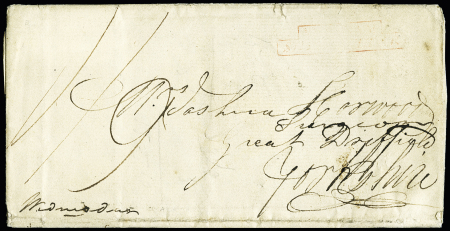 Mr. Joshua Harwood
Surgeon
Great Driffield
Yorkshire
Wednesday